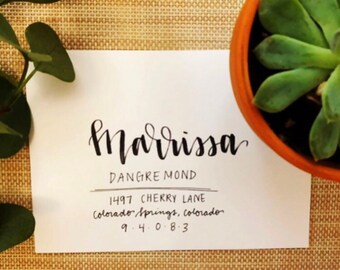 Marrissa
DANGREMOND
1497 CHERRY LANE
Colorado Springs, Colorado
9 · 4 · 0 · 8 · 3